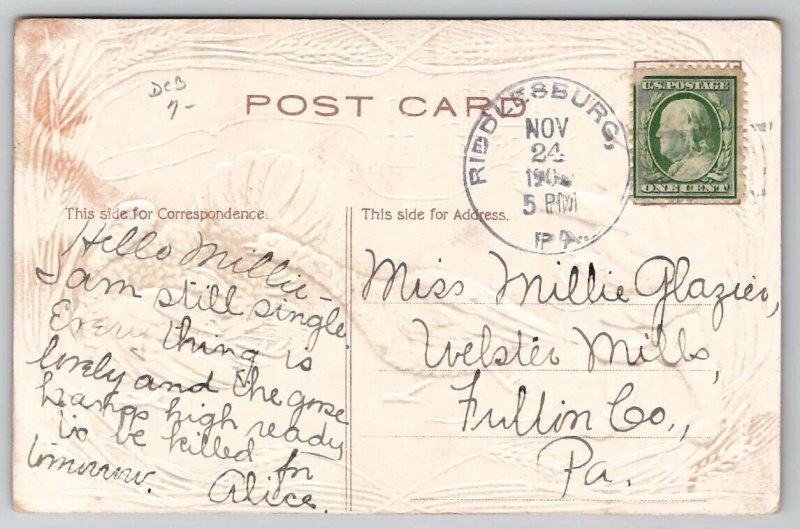 DCB
7-
POST CARD
U.S. POSTAGE
ONE CENT
RIDDLESBURG,
NOV
24
5 PM
PA.
This side for Correspondence.
This side for Address.
Hello Millie -
I am still single
Every thing is
lovely and the goose
hangs high ready
to be killed for
tomorrow.
Alice.
Miss Millie Glazier,
Webster Mills,
Fulton Co.,
Pa.